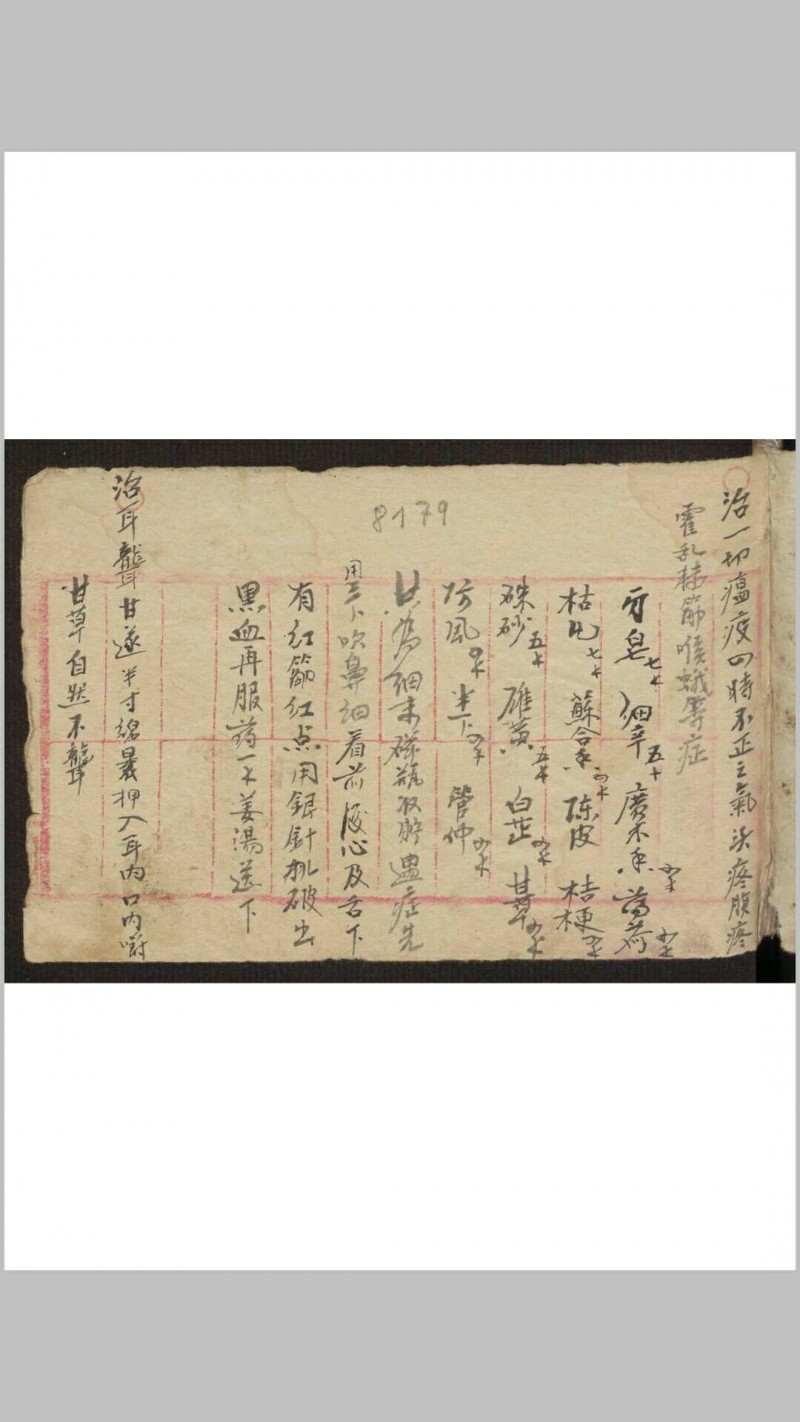 治一切瘟疫四時不正之氣头疼腹疼
霍乱转筋喉蛾等症
牙皂七 细辛五 廣木香 薄荷
枯凡七 蘇合香 陈皮 桔梗
硃砂五 雄黄五 白芷 甘草
防風 半下 管仲
共為细末磁瓶收貯遇症先
用三卜吹鼻细看前後心及舌下
有红筋红点用銀針挑破出
黑血再服药一 姜湯送下
治耳聾甘遂半寸綿裹押入耳内口内嚼
甘草自然不聾
8179